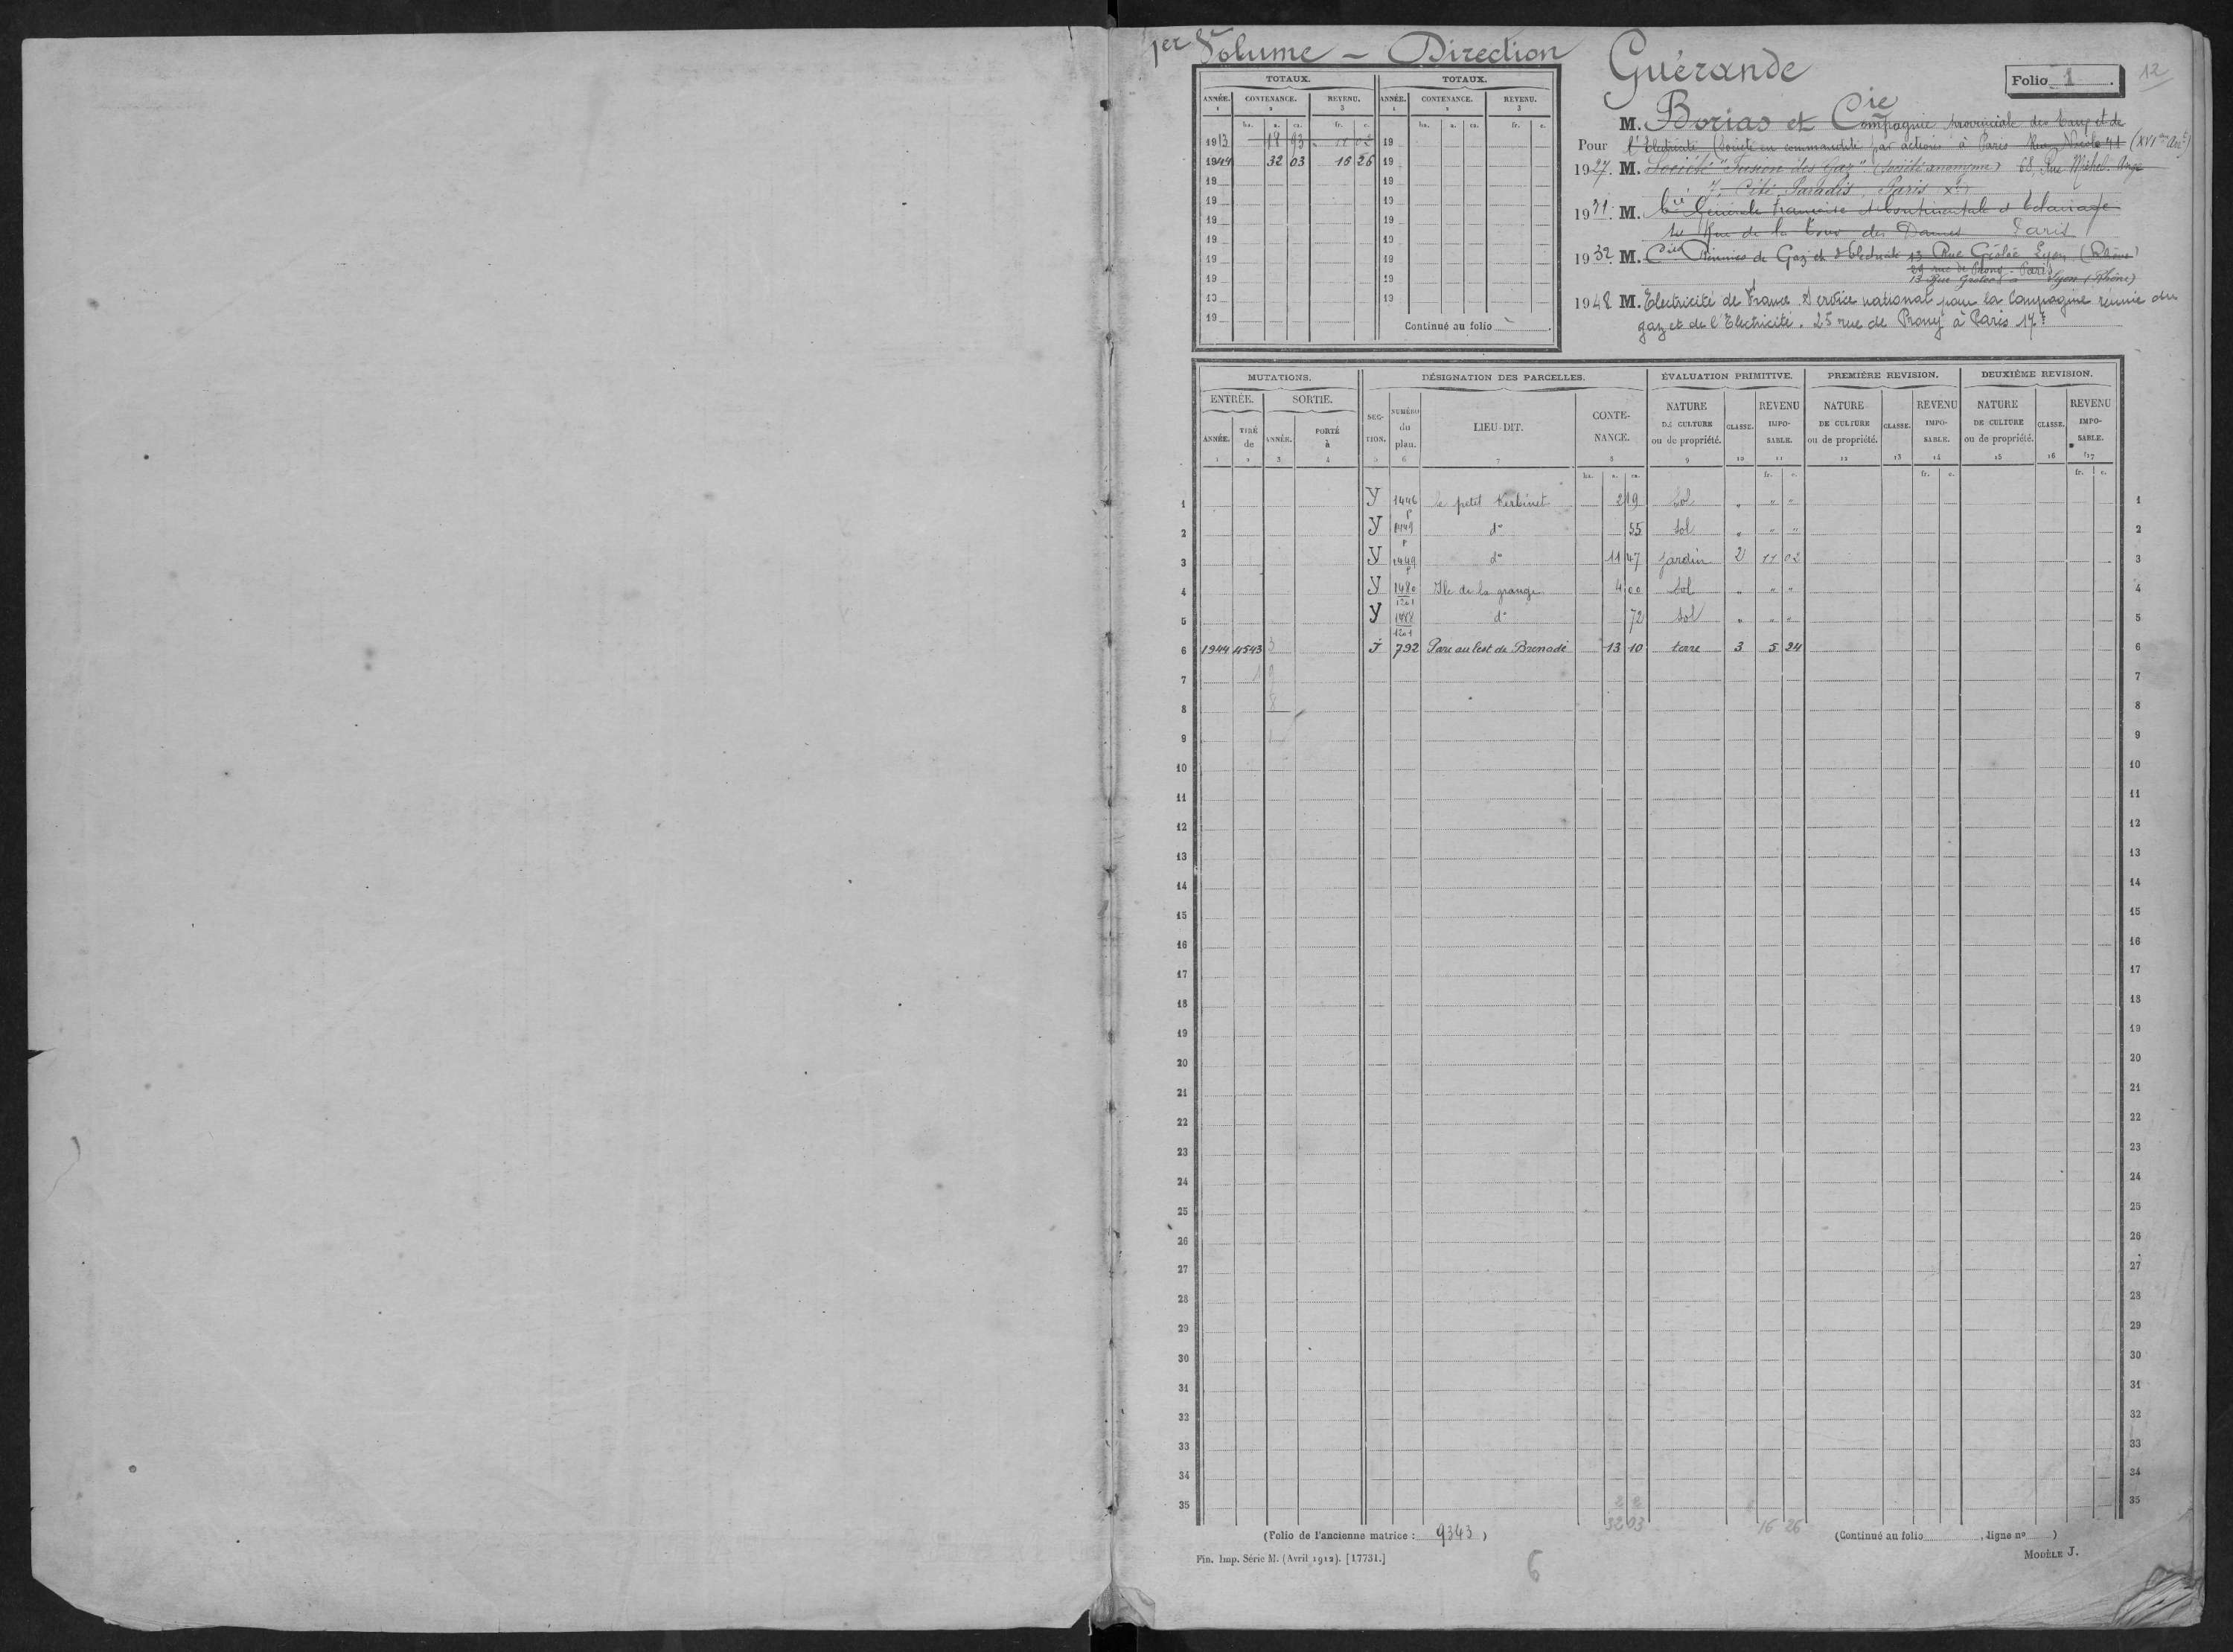 1er Volume – Direction
Guérande
Folio 1.
12
TOTAUX. TOTAUX.
ANNÉE. CONTENANCE. REVENU. ANNÉE. CONTENANCE. REVENU.
1 2 3 1 2 3
ha. a. ca. fr. c. ha. a. ca. fr. c.
1913 18 93 11 02 19
1944 32 03 16 26 19
19 19
19 19
19 19
19 19
19 19
19 19
19 19
19 Continué au folio
M. Borias et Cie Compagnie provinciale des Eaux et de
Pour l'Electricité (Société en commandite par actions à Paris Rue Nicolo 41 (XVIème Arrt)
1927. M. Société "Fusion des Gaz" (Société anonyme) 68, Rue Michel-Ange
7, Cité Paradis, Paris Xe
1931. M. Cie Générale Française et Continentale d'Eclairage
Rue de la Tour des Dames Paris
1932. M. Cies Réunies de Gaz et d'Electricité 13 Rue Grôlée Lyon (Rhône)
29 rue de Prony - Paris
13 Rue Grolée à Lyon (Rhône)
1948 M. Electricité de France. Service national pour la Compagnie réunie du
gaz et de l'Electricité. 25 rue de Prony à Paris 17e
MUTATIONS. DÉSIGNATION DES PARCELLES. ÉVALUATION PRIMITIVE. PREMIÈRE REVISION. DEUXIÈME REVISION.
ENTRÉE. SORTIE. SECTION. NUMÉRO du plan. LIEU-DIT. CONTENANCE. NATURE DE CULTURE ou de propriété. CLASSE. REVENU IMPOSABLE. NATURE DE CULTURE ou de propriété. CLASSE. REVENU IMPOSABLE. NATURE DE CULTURE ou de propriété. CLASSE. REVENU IMPOSABLE.
ANNÉE. TIRÉ de ANNÉE. PORTÉ à
1 2 3 4 5 6 7 8 9 10 11 12 13 14 15 16 17
ha. a. ca. fr. c. fr. c. fr. c.
1 Y 1446 p le petit Kerbinet 2 19 Sol " " " 1
2 Y 1449 p d° 55 Sol " " " 2
3 Y 1449 p d° 11 47 Jardin 2 11 02 3
4 Y 1480 1201 Ile de la grange 4 00 Sol " " " 4
5 Y 1488 1201 d° 72 Sol " " " 5
6 1944 4543 3 J 792 Parc au l'est de Brenadé 13 10 terre 3 5 24 6
7 7
8 8
9 9
10 10
11 11
12 12
13 13
14 14
15 15
16 16
17 17
18 18
19 19
20 20
21 21
22 22
23 23
24 24
25 25
26 26
27 27
28 28
29 29
30 30
31 31
32 32
33 33
34 34
35 35
32 03 16 26
(Folio de l'ancienne matrice : 9343 ) (Continué au folio , ligne n° )
Fin. Imp. Série M. (Avril 1912). [17731.] 6 MODÈLE J.